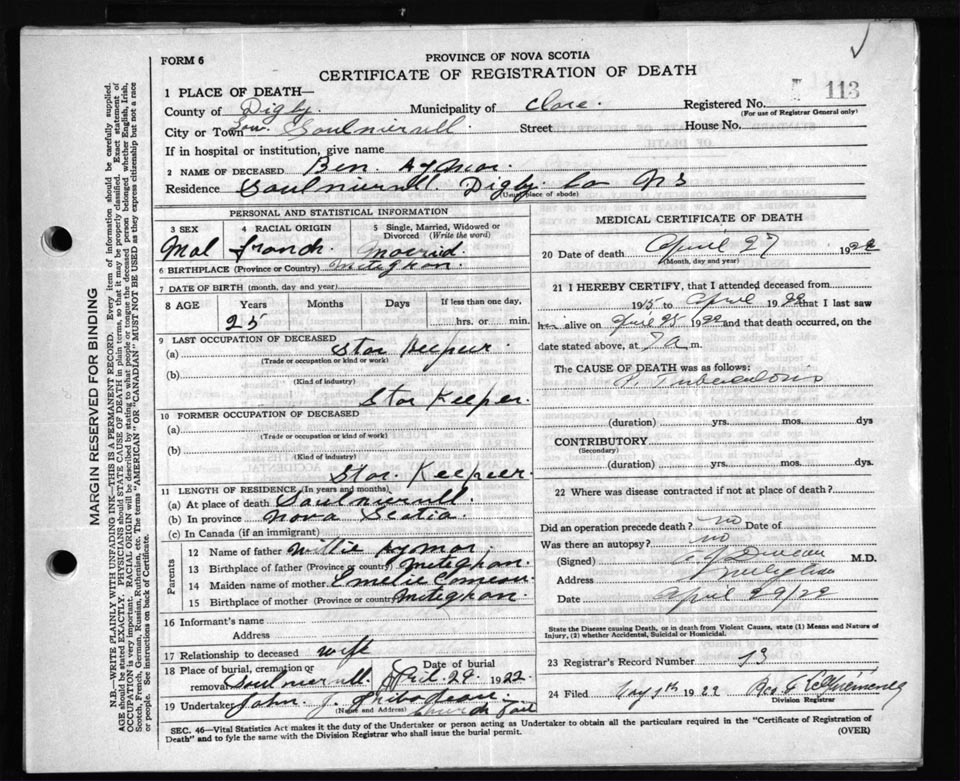 FORM 6
PROVINCE OF NOVA SCOTIA
CERTIFICATE OF REGISTRATION OF DEATH
113
1 PLACE OF DEATH—
County of Digby. Municipality of Clare. Registered No.
(For use of Registrar General only)
City or Town Saulnierville Street House No.
If in hospital or institution, give name
2 NAME OF DECEASED Ben Aymar.
Residence Saulnierull. Digby. Co NS
(Usual place of abode)
PERSONAL AND STATISTICAL INFORMATION
3 SEX 4 RACIAL ORIGIN 5 Single, Married, Widowed or Divorced (Write the word)
Mal franch Marrid.
6 BIRTHPLACE (Province or Country) Meteghan.
7 DATE OF BIRTH (month, day and year)
8 AGE Years Months Days If less than one day,
25 hrs. or min.
9 LAST OCCUPATION OF DECEASED
(a) Stor Keepeer.
(Trade or occupation or kind or work)
(b)
(Kind of industry)
Stor Keeper.
10 FORMER OCCUPATION OF DECEASED
(a)
(Trade or occupation or kind of work)
(b)
(Kind of industry)
Stor. Keepeer.
11 LENGTH OF RESIDENCE (In years and months)
(a) At place of death Saulnierull.
(b) In province Nova Scotia.
(c) In Canada (if an immigrant)
Parents
12 Name of father Willie Aymar.
13 Birthplace of father (Province or country) Meteghan.
14 Maiden name of mother Emelie Comeau
15 Birthplace of mother (Province or country) Meteghan.
16 Informant's name
Address
17 Relationship to deceased wife
18 Place of burial, cremation or removal Saulnierull. Date of burial April. 29. 1922.
19 Undertaker John J. Thibodeau.
(Name and Address) Church Point
MEDICAL CERTIFICATE OF DEATH
20 Date of death April 27 1922
(Month, day and year)
21 I HEREBY CERTIFY, that I attended deceased from
1915 to April 1922 that I last saw
him alive on April 25 1922 and that death occurred, on
date stated above, at 7 a m.
The CAUSE OF DEATH was as follows:
P. Tuberculosis
(duration) yrs. mos. dys
CONTRIBUTORY
(Secondary)
(duration) yrs. mos. dys.
22 Where was disease contracted if not at place of death?
Did an operation precede death? no Date of
Was there an autopsy? no
(Signed) Duncan M.D.
Address
Date April 29/22
State the Disease causing Death, or in death from Violent Causes, state (1) Means and Nature of Injury, (2) whether Accidental, Suicidal or Homicidal.
23 Registrar's Record Number 13
24 Filed May 1th 1922 Rev.
Division Registrar
SEC. 46—Vital Statistics Act makes it the duty of the Undertaker or person acting as Undertaker to obtain all the particulars required in the "Certificate of Registration of
Death" and to fyle the same with the Division Registrar who shall issue the burial permit. (OVER)
MARGIN RESERVED FOR BINDING
N.B.—WRITE PLAINLY WITH UNFADING INK—THIS IS A PERMANENT RECORD. Every item of information should be carefully supplied.
AGE should be stated EXACTLY. PHYSICIANS should STATE CAUSE OF DEATH in plain terms, so that it may be properly classified. Exact statement of
OCCUPATION is very important. RACIAL ORIGIN will be described by stating to what people or tongue the deceased person belonged whether English, Irish,
Scotch, French, German, Russian, Ruthenian, etc. The terms "AMERICAN" OR "CANADIAN" MUST NOT BE USED as they express citizenship but not a race
or people. See instructions on back of Certificate.